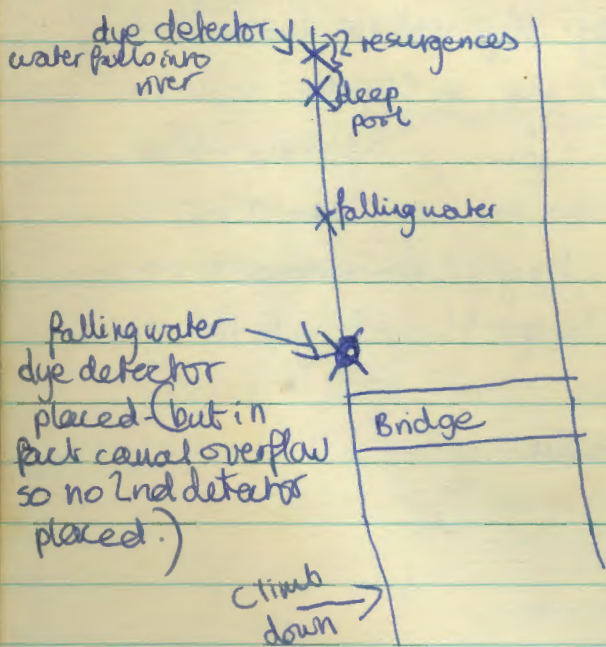 dye detector
water falls into
river
2 resurgences
deep
pool
falling water
falling water
dye detector
placed (but in
fact canal overflow
so no 2nd detector
placed.)
Bridge
Climb
down